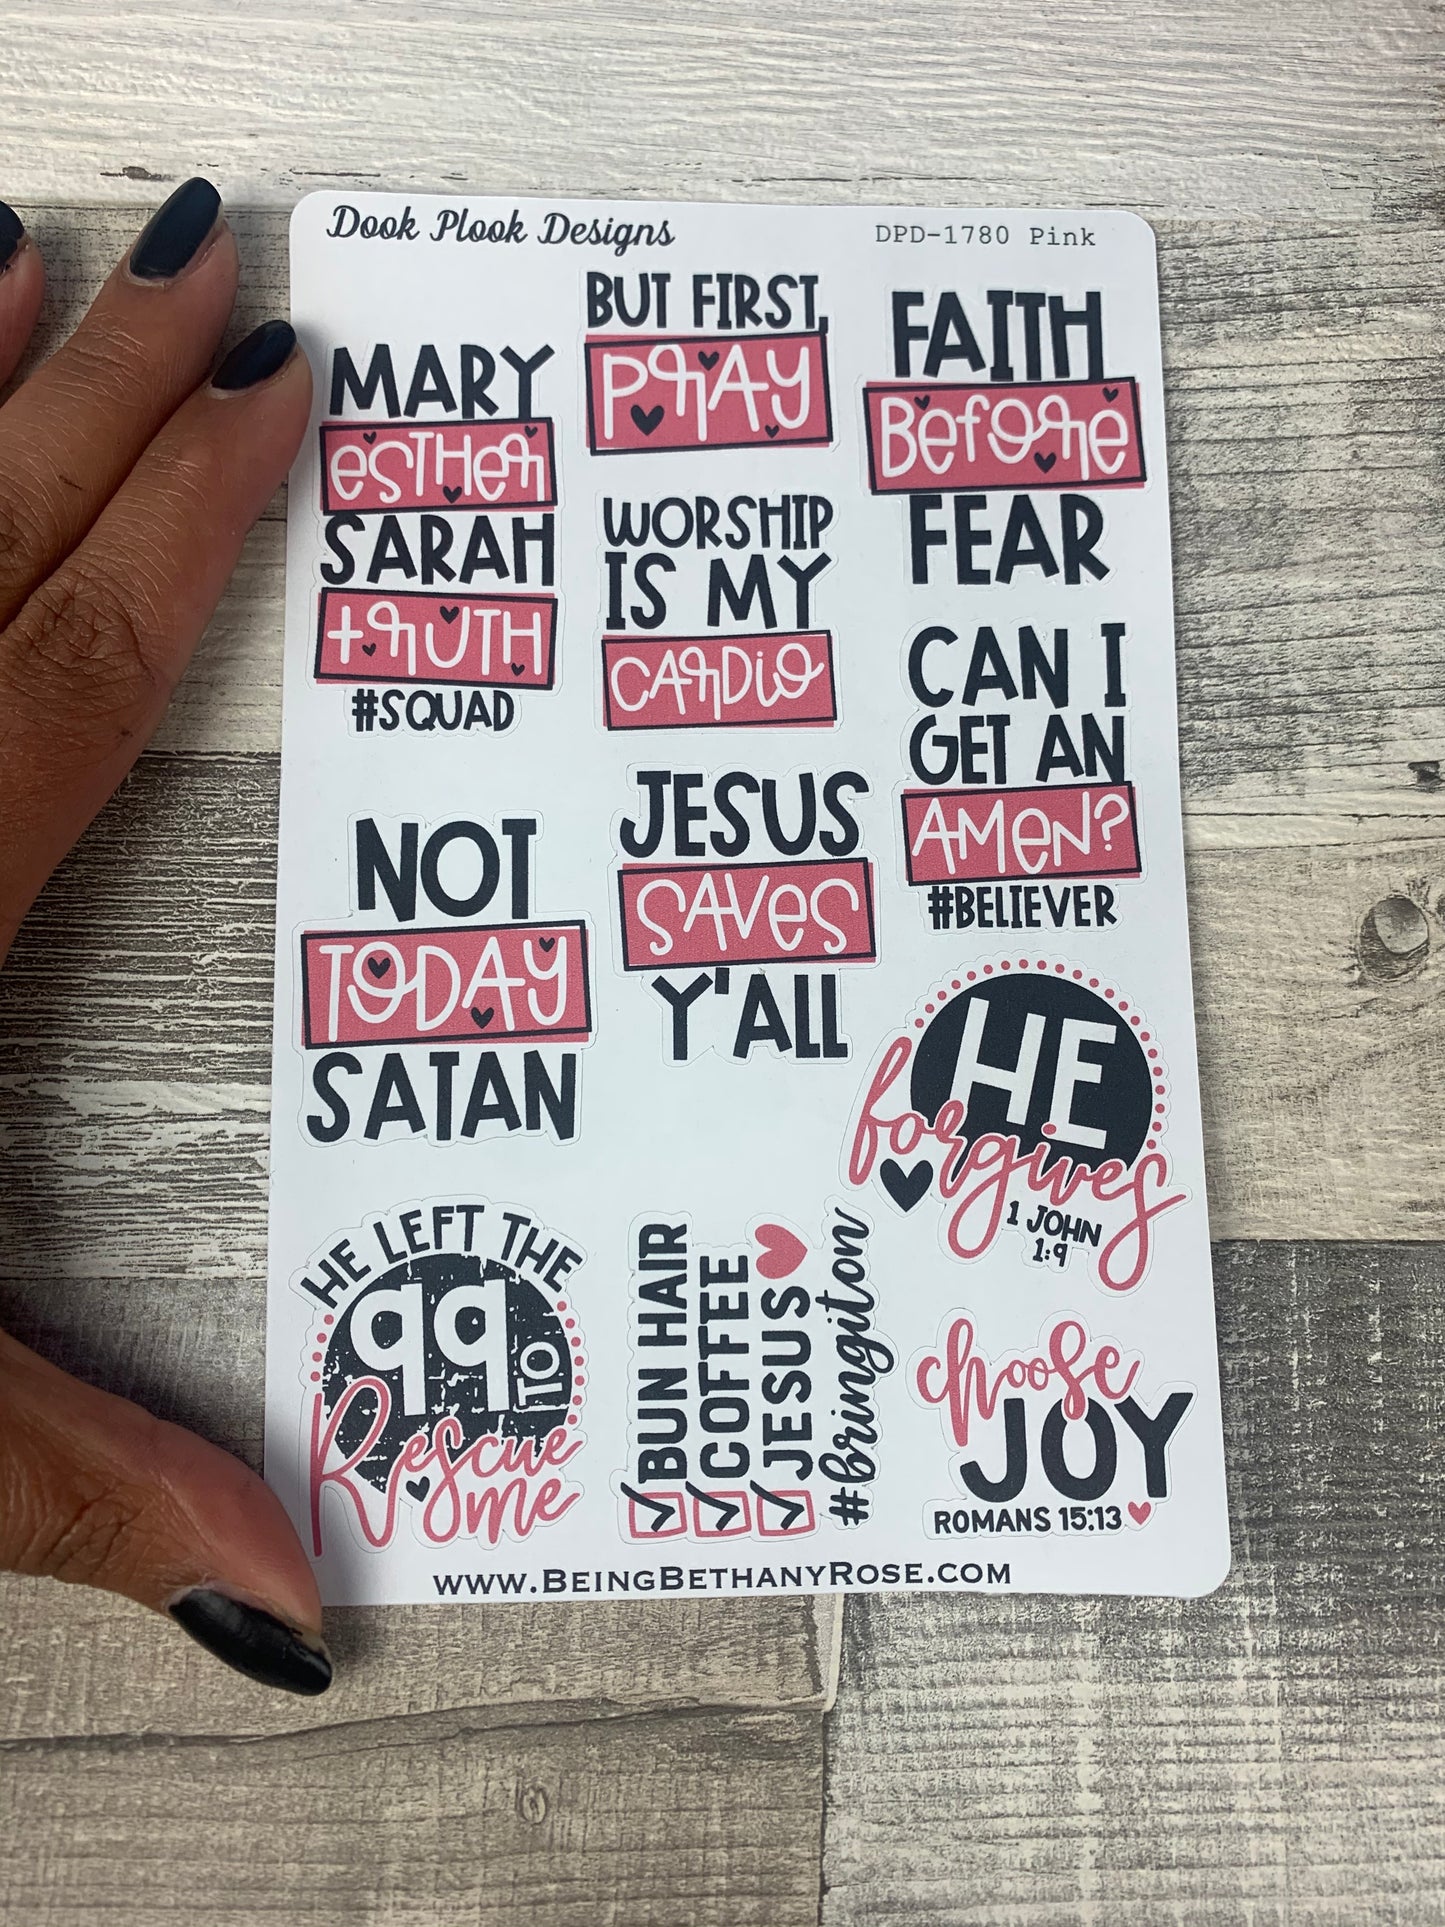 Dook Plook Designs
DPD-1780 Pink
MARY
esTHer
SARAH
trUTH
#SQUAD
BUT FIRST,
PrAy
FAITH
Before
FEAR
WORSHIP
IS MY
CArDio
CAN I
GET AN
AMeN?
#BELIEVER
NOT
TODAY
SATAN
JESUS
SAVeS
Y'ALL
HE
forgives
1 JOHN
1:9
HE LEFT THE
99 TO
Rescue
me
BUN HAIR
COFFEE
JESUS
#bringiton
choose
JOY
ROMANS 15:13
www.BeingBethanyRose.com